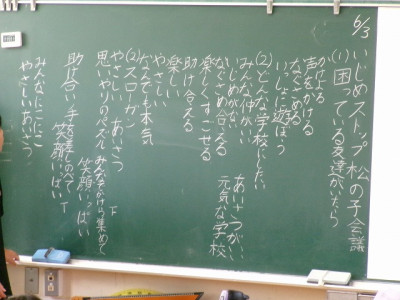 6/3
いじめストップ松の子会議
(1)困っている友達がいたら
かけよる
声をかける
なぐさめる
いっしょに遊ぼう
(2)どんな学校にしたい
みんな仲がいい
いじめがない
あいさつがいい
なぐさめ合える
元気な学校
楽しくすごせる
助け合える
楽しい
やさしい
なんでも本気
(2)スローガン
やさしい あいさつ
思いやりのパズル みんなでかけら集めて
笑顔いっぱい
助け合い 手を差しのべて
笑顔いっぱい
みんなにこにこ
やさしいあいさつ